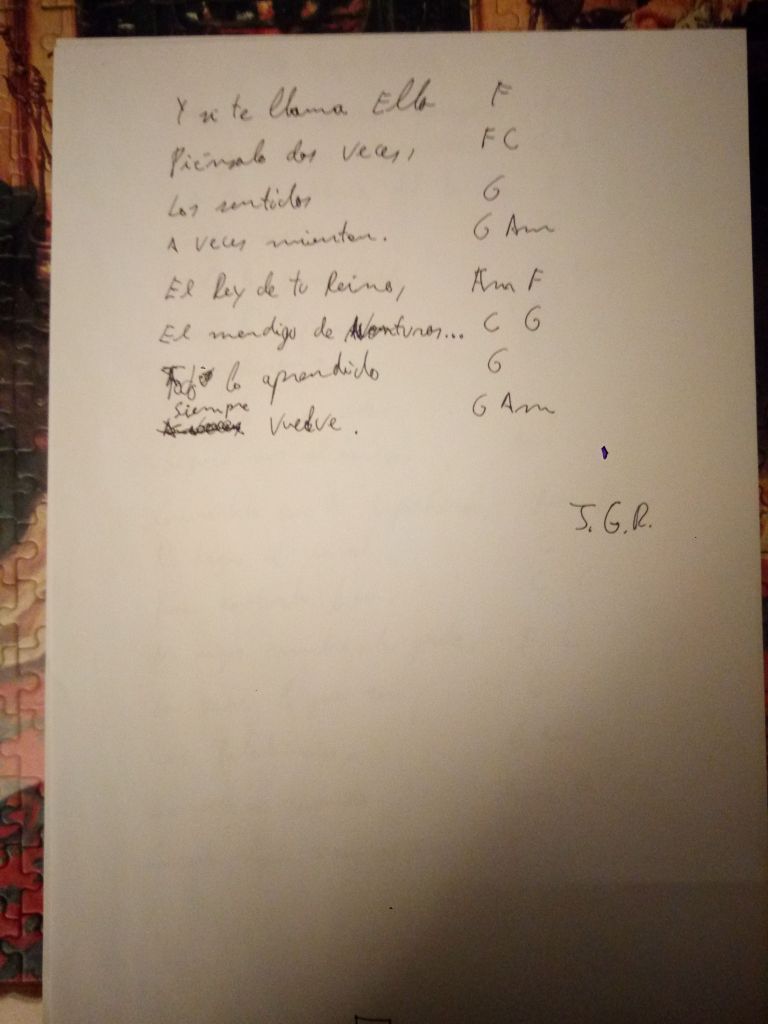 Y si te llama Ella F
Piénsalo dos veces, F C
Los sentidos G
A veces mienten. G Am
El Rey de tu Reino, Am F
El mendigo de Aventuras... C G
Todo lo aprendido G
Siempre
vuelve. G Am
J. G. R.